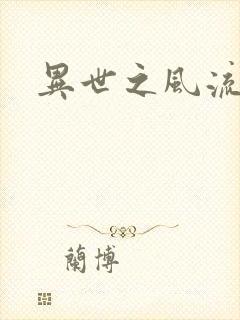 異世之風流
蘭博